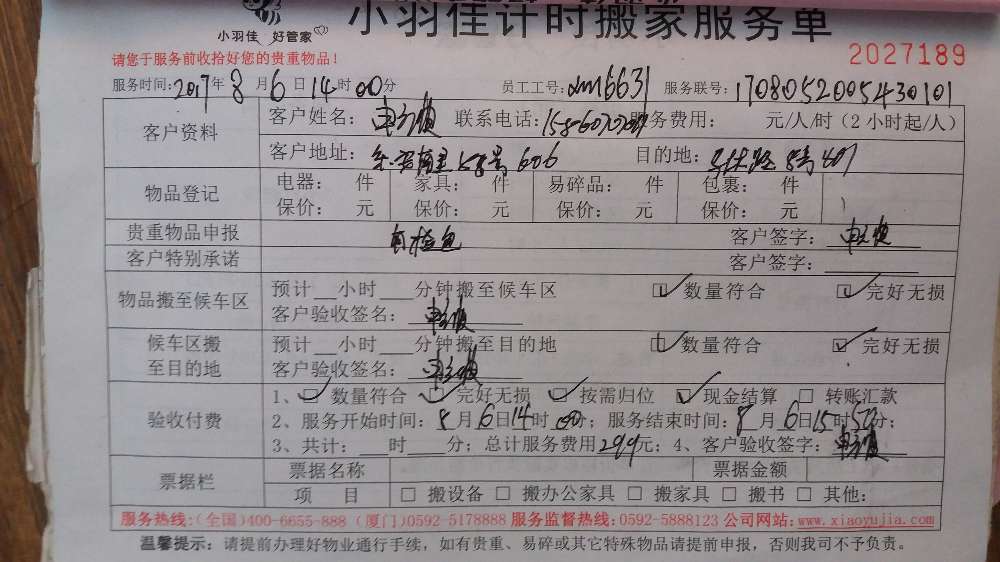 小羽佳计时搬家服务单
小羽佳 好管家
请您于服务前收拾好您的贵重物品！ 2027189
服务时间：2017年8月6日14时00分 员工工号：xm16631 服务联号：1708052005430101
客户资料 客户姓名： 联系电话： 服务费用： 元/人/时（2小时起/人）
客户地址： 58号606 目的地： 8号407
物品登记 电器： 件 家具： 件 易碎品： 件 包裹： 件
保价： 元 保价： 元 保价： 元 保价： 元
贵重物品申报 自检查 客户签字：
客户特别承诺 客户签字：
物品搬至候车区 预计__小时___分钟搬至候车区 ☑ 数量符合 ☑ 完好无损
客户验收签名：
候车区搬至目的地 预计__小时___分钟搬至目的地 ☑ 数量符合 ☑ 完好无损
客户验收签名：
验收付费 1、☑ 数量符合 ☑ 完好无损 ☑ 按需归位 ☑ 现金结算 □ 转账汇款
2、服务开始时间：8月6日14时00分；服务结束时间：8月6日15时50分；
3、共计：___时___分；总计服务费用299元；4、客户验收签字：
票据栏 票据名称 票据金额
项 目 □ 搬设备 □ 搬办公家具 □ 搬家具 □ 搬书 □ 其他：
服务热线：(全国)400-6655-888 (厦门)0592-5178888 服务监督热线：0592-5888123 公司网站：www.xiaoyujia.com
温馨提示：请提前办理好物业通行手续，如有贵重、易碎或其它特殊物品请提前申报，否则我司不予负责。